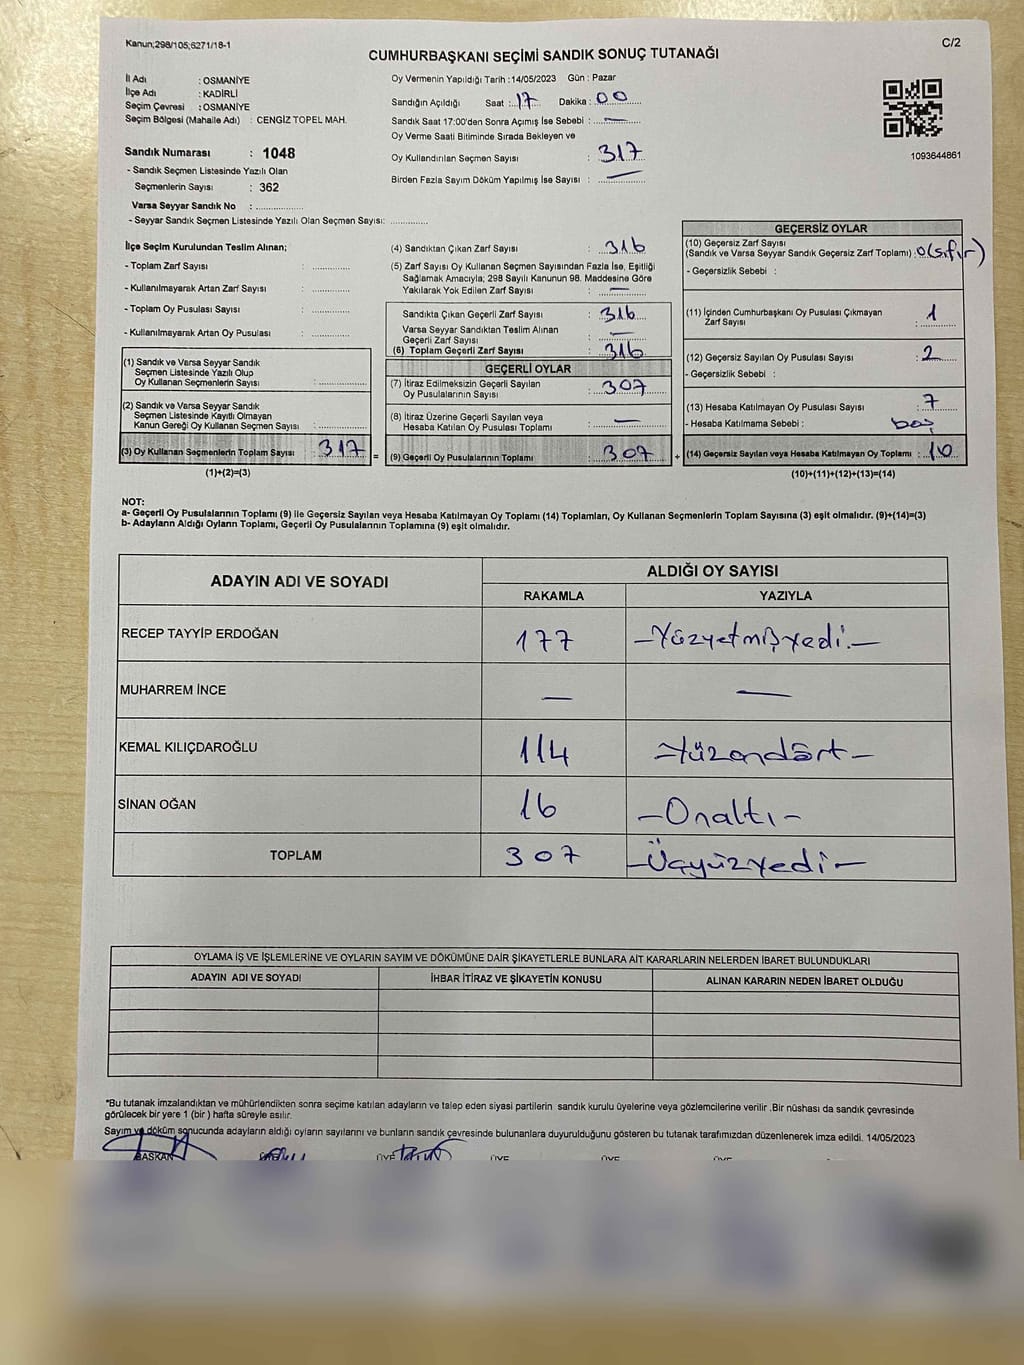 Kanun;298/105;6271/18-1
C/2
CUMHURBAŞKANI SEÇİMİ SANDIK SONUÇ TUTANAĞI
İl Adı : OSMANİYE
İlçe Adı : KADİRLİ
Seçim Çevresi : OSMANİYE
Seçim Bölgesi (Mahalle Adı) : CENGİZ TOPEL MAH.
Sandık Numarası : 1048
- Sandık Seçmen Listesinde Yazılı Olan
Seçmenlerin Sayısı : 362
Varsa Seyyar Sandık No : ..................
- Seyyar Sandık Seçmen Listesinde Yazılı Olan Seçmen Sayısı: ..............
Oy Vermenin Yapıldığı Tarih :14/05/2023 Gün : Pazar
Sandığın Açıldığı Saat : 17 Dakika : 00
Sandık Saat 17:00'den Sonra Açımış İse Sebebi : —
Oy Verme Saati Bitiminde Sırada Bekleyen ve
Oy Kullandırılan Seçmen Sayısı : 317
Birden Fazla Sayım Döküm Yapılmış İse Sayısı : —
1093644861
İlçe Seçim Kurulundan Teslim Alınan;
- Toplam Zarf Sayısı : ..............
- Kullanılmayarak Artan Zarf Sayısı : ..............
- Toplam Oy Pusulası Sayısı : ..............
- Kullanılmayarak Artan Oy Pusulası : ..............
(1) Sandık ve Varsa Seyyar Sandık
Seçmen Listesinde Yazılı Olup
Oy Kullanan Seçmenlerin Sayısı : ..............
(2) Sandık ve Varsa Seyyar Sandık
Seçmen Listesinde Kayıtlı Olmayan
Kanun Gereği Oy Kullanan Seçmen Sayısı : ..............
(3) Oy Kullanan Seçmenlerin Toplam Sayısı : 317
(1)+(2)=(3)
=
(4) Sandıktan Çıkan Zarf Sayısı : 316
(5) Zarf Sayısı Oy Kullanan Seçmen Sayısından Fazla İse, Eşitliği
Sağlamak Amacıyla; 298 Sayılı Kanunun 98. Maddesine Göre
Yakılarak Yok Edilen Zarf Sayısı : —
Sandıkta Çıkan Geçerli Zarf Sayısı : 316
Varsa Seyyar Sandıktan Teslim Alınan
Geçerli Zarf Sayısı : —
(6) Toplam Geçerli Zarf Sayısı : 316
GEÇERLİ OYLAR
(7) İtiraz Edilmeksizin Geçerli Sayılan
Oy Pusulalarının Sayısı : 307
(8) İtiraz Üzerine Geçerli Sayılan veya
Hesaba Katılan Oy Pusulaları Toplamı : —
(9) Geçerli Oy Pusulalarının Toplamı : 307
+
GEÇERSİZ OYLAR
(10) Geçersiz Zarf Sayısı
(Sandık ve Varsa Seyyar Sandık Geçersiz Zarf Toplamı) : 0(sıfır)
- Geçersizlik Sebebi :
(11) İçinden Cumhurbaşkanı Oy Pusulası Çıkmayan
Zarf Sayısı : 1
(12) Geçersiz Sayılan Oy Pusulası Sayısı : 2
- Geçersizlik Sebebi :
(13) Hesaba Katılmayan Oy Pusulası Sayısı : 7
- Hesaba Katılmama Sebebi : boş
(14) Geçersiz Sayılan veya Hesaba Katılmayan Oy Toplamı : 10
(10)+(11)+(12)+(13)=(14)
NOT:
a- Geçerli Oy Pusulasının Toplamı (9) ile Geçersiz Sayılan veya Hesaba Katılmayan Oy Toplamı (14) Toplamları, Oy Kullanan Seçmenlerin Toplam Sayısına (3) eşit olmalıdır. (9)+(14)=(3)
b- Adayların Aldığı Oyların Toplamı, Geçerli Oy Pusulalarının Toplamına (9) eşit olmalıdır.
ADAYIN ADI VE SOYADI
ALDIĞI OY SAYISI
RAKAMLA YAZIYLA
RECEP TAYYİP ERDOĞAN 177 -Yüzyetmişyedi.-
MUHARREM İNCE — —
KEMAL KILIÇDAROĞLU 114 -Yüzondört-
SİNAN OĞAN 16 -Onaltı-
TOPLAM 307 -Üçyüzyedi-
OYLAMA İŞ VE İŞLEMLERİNE VE OYLARIN SAYIM VE DÖKÜMÜNE DAİR ŞİKAYETLERLE BUNLARA AİT KARARLARIN NELERDEN İBARET BULUNDUKLARI
ADAYIN ADI VE SOYADI İHBAR İTİRAZ VE ŞİKAYETİN KONUSU ALINAN KARARIN NEDEN İBARET OLDUĞU
*Bu tutanak imzalandıktan ve mühürlendikten sonra seçime katılan adayların ve talep eden siyasi partilerin sandık kurulu üyelerine veya gözlemcilerine verilir .Bir nüshası da sandık çevresinde
görülecek bir yere 1 (bir ) hafta süreyle asılır.
Sayım ve döküm sonucunda adayların aldığı oyların sayılarını ve bunların sandık çevresinde bulunanlara duyurulduğunu gösteren bu tutanak tarafımızdan düzenlenerek imza edildi. 14/05/2023
BAŞKAN ÜYE ÜYE ÜYE ÜYE